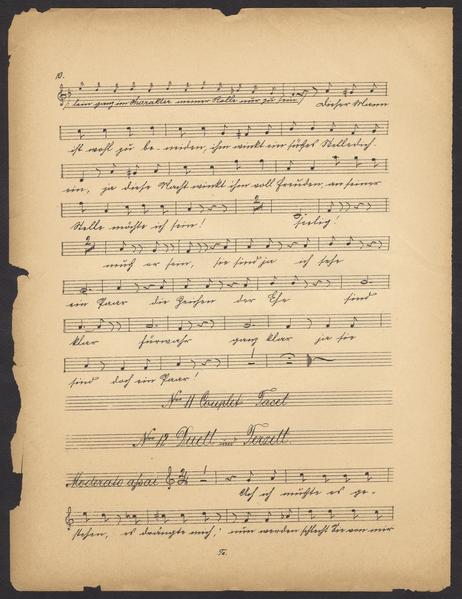 13.
sein ganz im Charakter meiner Rolle nur zu sein Dieser Mann
ist wohl zu be- neiden, ihm winkt ein süßes Stelldich-
ein, ja diese Nacht winkt ihm voll Freuden, an seiner
Stelle möchte ich sein! 2
2 muß er sein, sie sind ja ich sehe
ein Paar die Zeichen der Ehe sind
klar fürwahr ganz klar ja sie
sind doch ein Paar!
Nro 11 Couplet Tacet
Nro 12 Duett und Terzett.
Moderato assai
Ach ich mußte es ge-
stehen, es drängte mich, nun werden schlecht Sie von mir